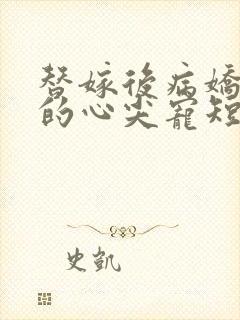 替嫁後病嬌
的心尖寵短
史凱